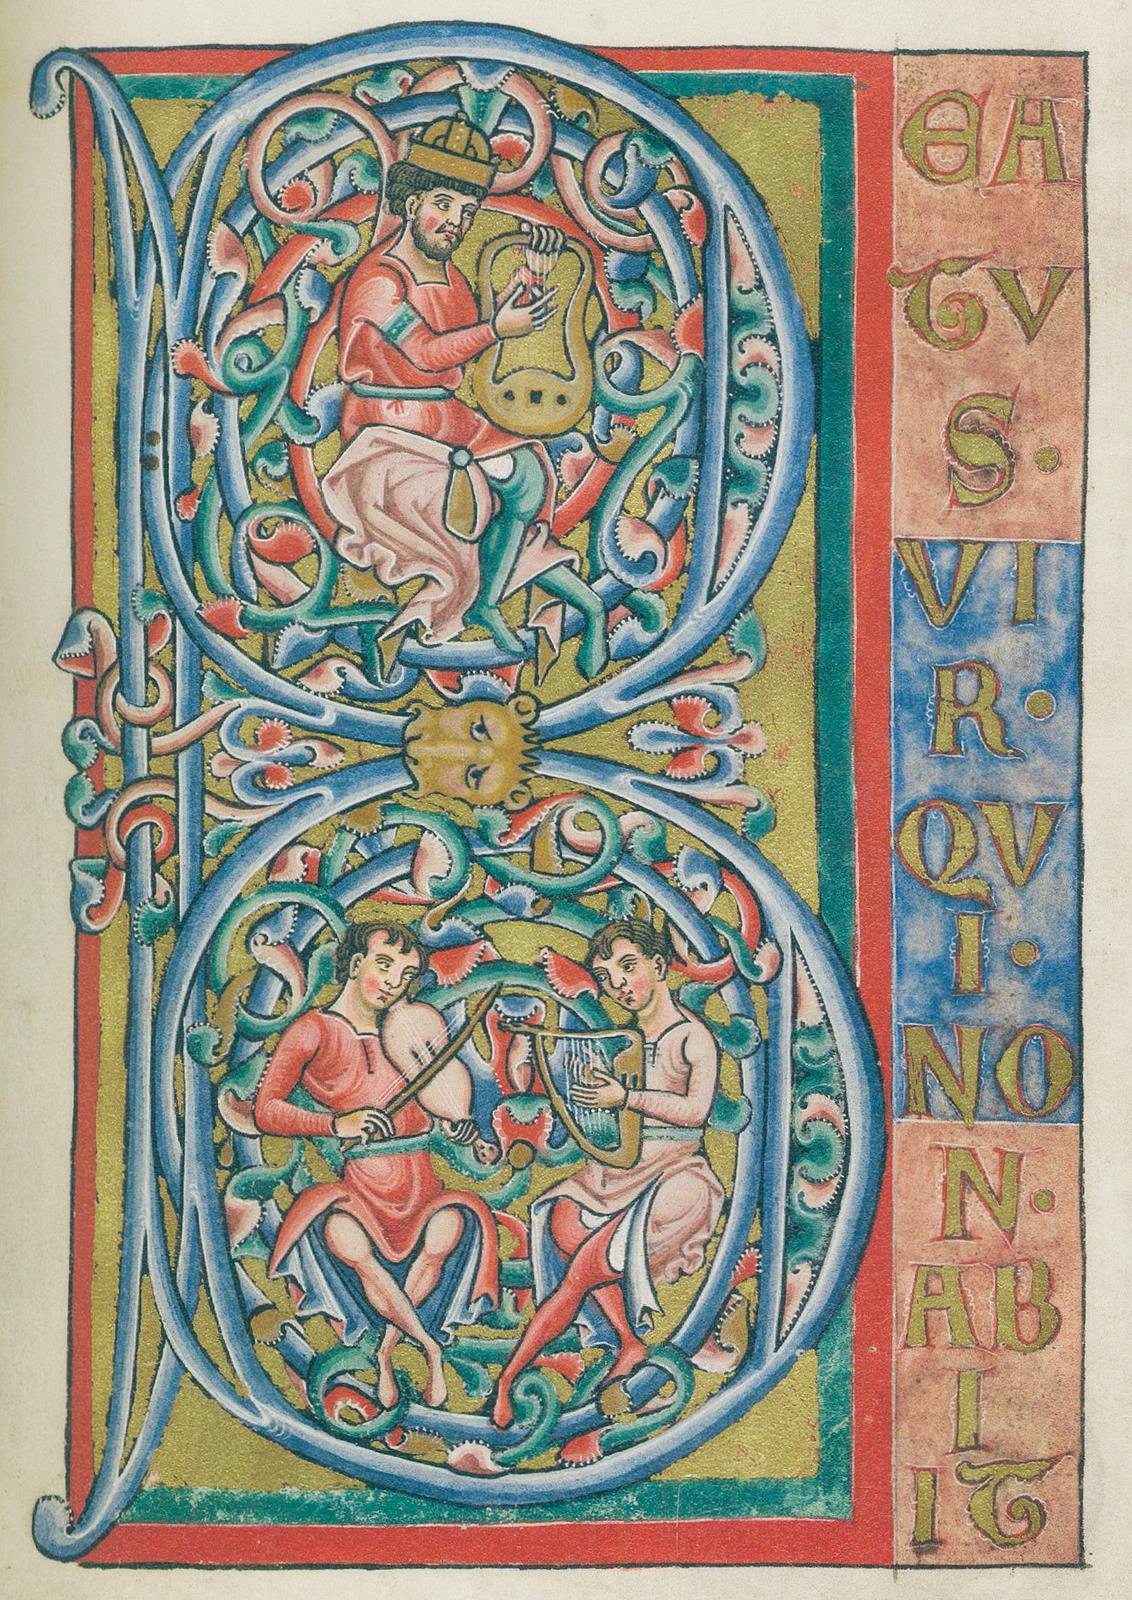 B
EA
TV
S·
VI
R·
QV
I·
NO
N·
AB
I
IT